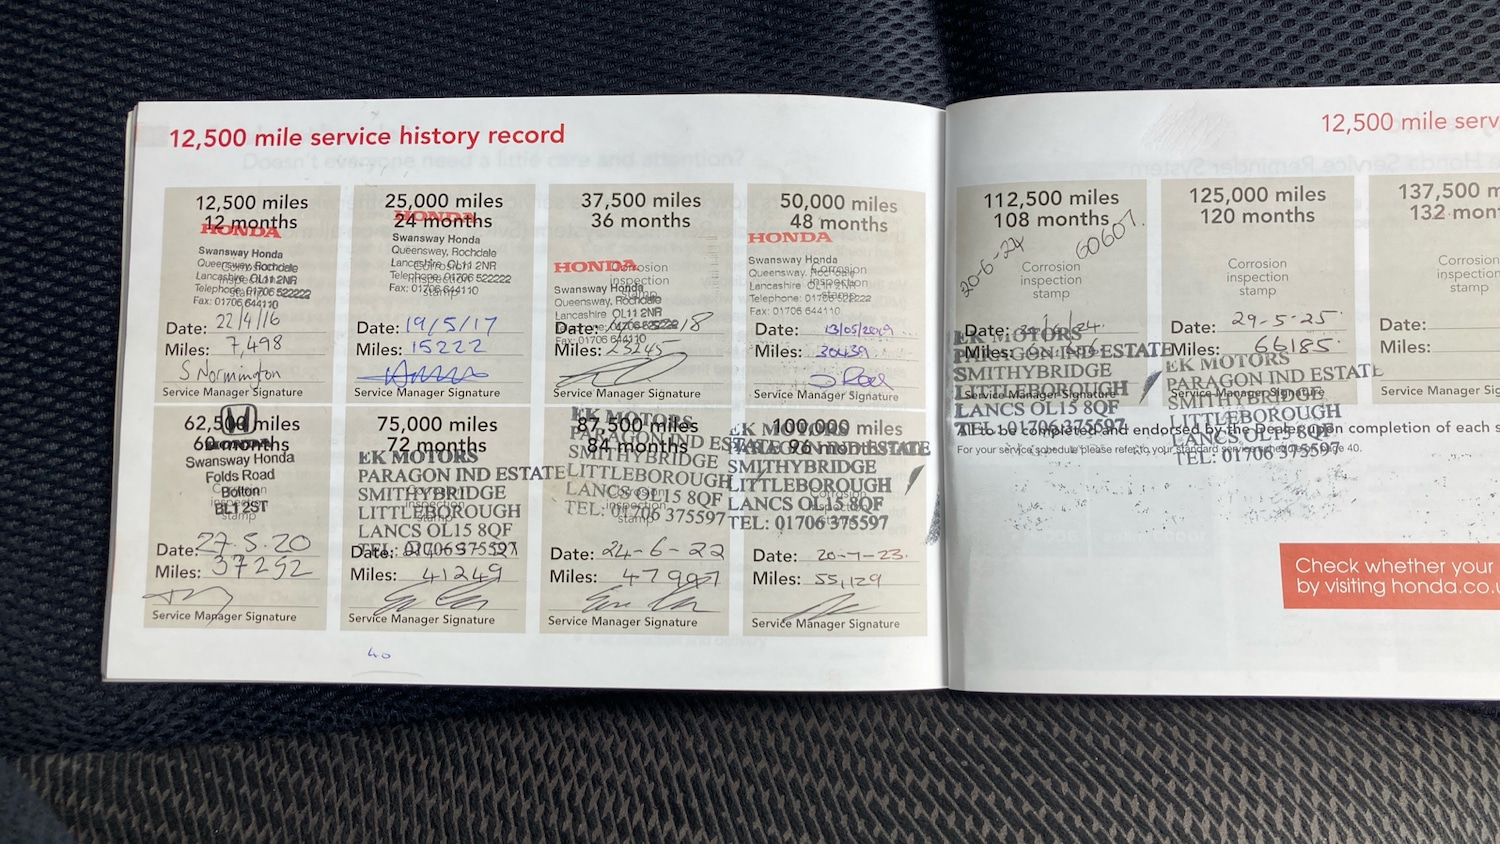 12,500 mile service history record
12,500 miles
12 months
HONDA
Swansway Honda
Queensway, Rochdale
Lancashire OL11 2NR
Telephone: 01706 522222
Fax: 01706 644110
Corrosion
inspection
stamp
Date: 22/4/16
Miles: 7,498
S Normington
Service Manager Signature
25,000 miles
24 months
HONDA
Swansway Honda
Queensway, Rochdale
Lancashire OL11 2NR
Telephone: 01706 522222
Fax: 01706 644110
Corrosion
inspection
stamp
Date: 19/5/17
Miles: 15222
Service Manager Signature
37,500 miles
36 months
HONDA
Swansway Honda
Queensway, Rochdale
Lancashire OL11 2NR
Fax: 01706 644110
Corrosion
inspection
stamp
Date: 18
Miles: 23245
Service Manager Signature
50,000 miles
48 months
HONDA
Swansway Honda
Queensway, Rochdale
Lancashire OL11 2NR
Telephone: 01706 522222
Fax: 01706 644110
Corrosion
inspection
stamp
Date: 13/05/2019
Miles: 30439
Service Manager Signature
62,500 miles
60 months
HONDA
Swansway Honda
Folds Road
Bolton
BL1 2ST
Corrosion
inspection
stamp
Date: 27.5.20
Miles: 37252
Service Manager Signature
75,000 miles
72 months
EK MOTORS
PARAGON IND ESTATE
SMITHYBRIDGE
LITTLEBOROUGH
LANCS OL15 8QF
TEL: 01706 375597
Date:
Miles: 41249
Service Manager Signature
87,500 miles
84 months
EK MOTORS
PARAGON IND ESTATE
SMITHYBRIDGE
LITTLEBOROUGH
LANCS OL15 8QF
TEL: 01706 375597
Corrosion
inspection
stamp
Date: 24-6-22
Miles: 47997
Service Manager Signature
100,000 miles
96 months
EK MOTORS
PARAGON IND ESTATE
SMITHYBRIDGE
LITTLEBOROUGH
LANCS OL15 8QF
TEL: 01706 375597
Date: 20-7-23.
Miles: 55,129
Service Manager Signature
40
12,500 mile serv
112,500 miles
108 months
20-6-24
60607.
Corrosion
inspection
stamp
Date:
Miles:
EK MOTORS
PARAGON IND ESTATE
SMITHYBRIDGE
LITTLEBOROUGH
LANCS OL15 8QF
TEL: 01706 375597
Service Manager Signature
125,000 miles
120 months
Corrosion
inspection
stamp
Date: 29-5-25.
Miles: 66185.
EK MOTORS
PARAGON IND ESTATE
SMITHYBRIDGE
LITTLEBOROUGH
LANCS OL15 8QF
TEL: 01706 375597
Service Manager Signature
137,500 m
132 mon
Corrosion
inspection
stamp
Date:
Miles:
Service Manager Sig
All to be completed and endorsed by the Dealer upon completion of each s
For your service schedule please refer to your standard service page 40.
Check whether your
by visiting honda.co.u